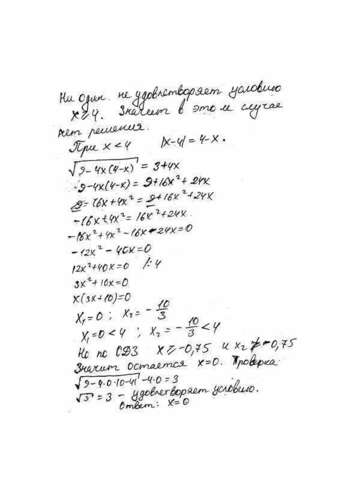 Ни один не удовлетворяет условию
x ≥ 4. Значит в этом случае
нет решения.
При x < 4 |x-4| = 4-x.
√(9-4x(4-x)) = 3+4x
9-4x(4-x) = 9+16x²+24x
9-16x+4x² = 9+16x²+24x
-16x+4x² = 16x²+24x
-16x²+4x²-16x-24x=0
-12x²-40x=0
12x²+40x=0 /:4
3x²+10x=0
x(3x+10)=0
x₁=0; x₂=-10/3
x₁=0<4; x₂=-10/3<4
Но по ОДЗ x ≥ -0,75 и x₂ ≱ -0,75
Значит остается x=0. Проверка:
√(9-4·0·|0-4|)-4·0=3
√9=3 - удовлетворяет условию.
Ответ: x=0